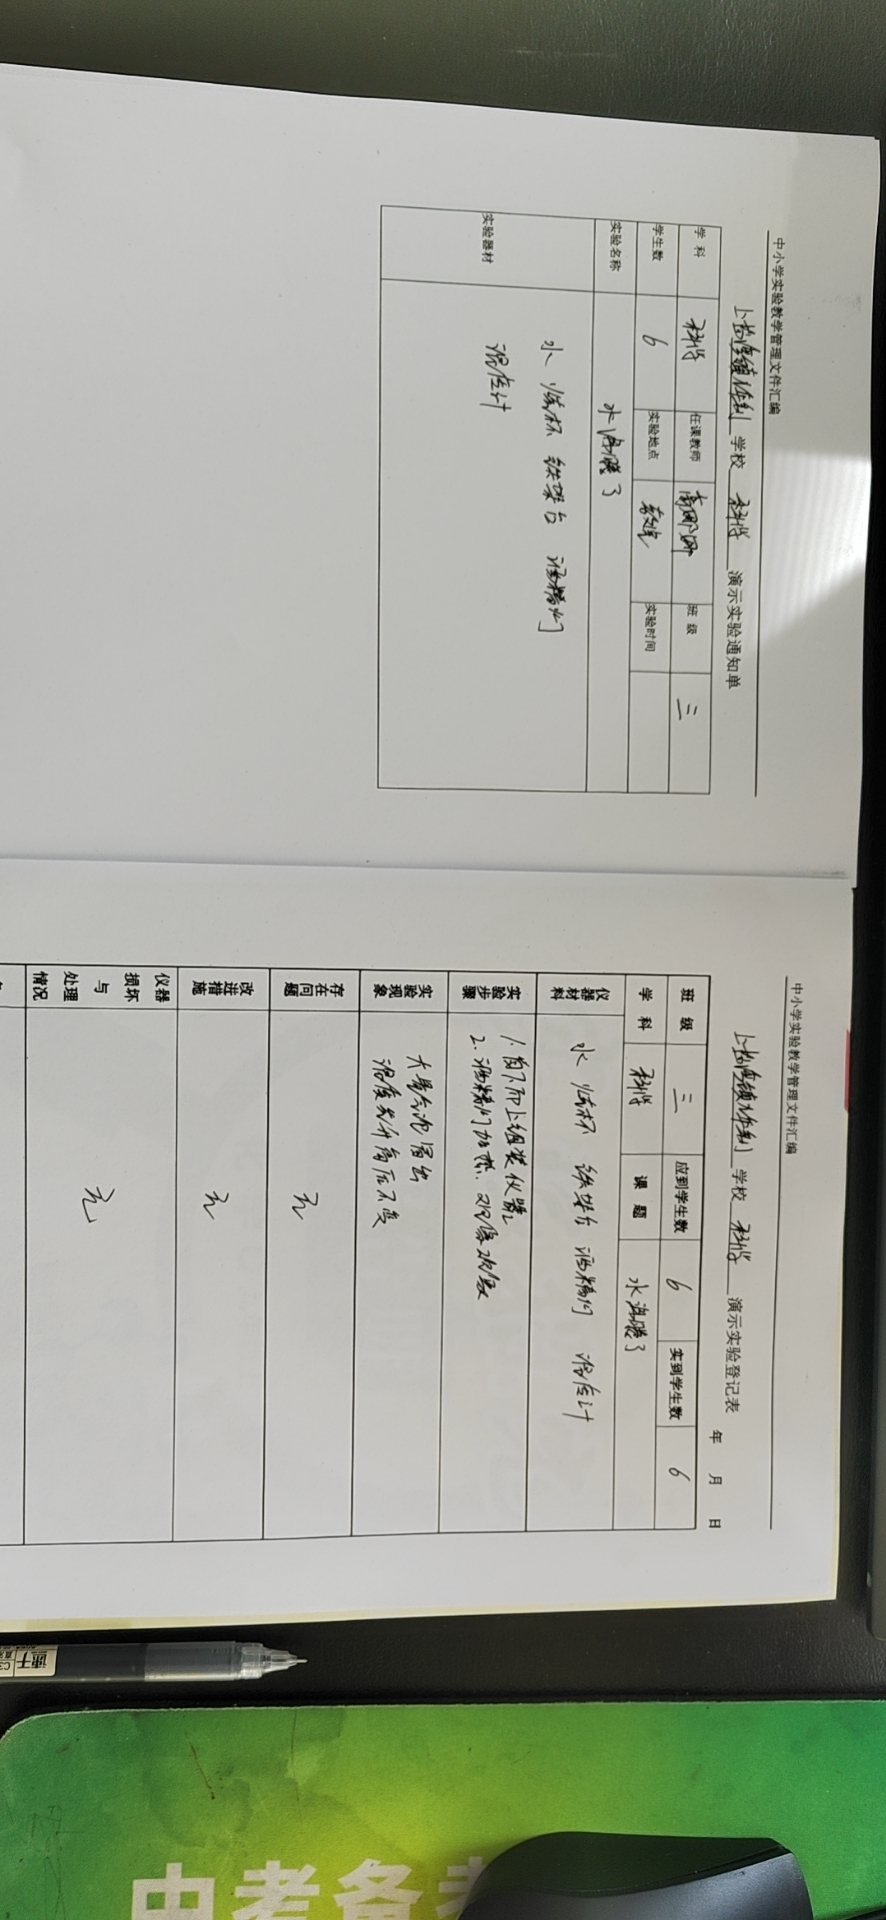 中小学实验教学管理文件汇编
学校 科学 演示实验通知单
学 科 科学 任课教师 班 级 三
学生数 6 实验地点 教室 实验时间
实验名称 水沸腾了
实验器材
水 烧杯 铁架台 酒精灯
温度计
中小学实验教学管理文件汇编
学校 科学 演示实验登记表
年 月 日
班 级 三 应到学生数 6 实到学生数 6
学 科 科学 课 题 水沸腾了
仪器材料 水 烧杯 铁架台 酒精灯 温度计
实验步骤
1. 自下而上组装仪器
2. 酒精灯加热. 观察现象
实验现象
大量气泡冒出
温度先升高后不变
存在问题 无
改进措施 无
仪器损坏与处理情况 无
速干
中考备考